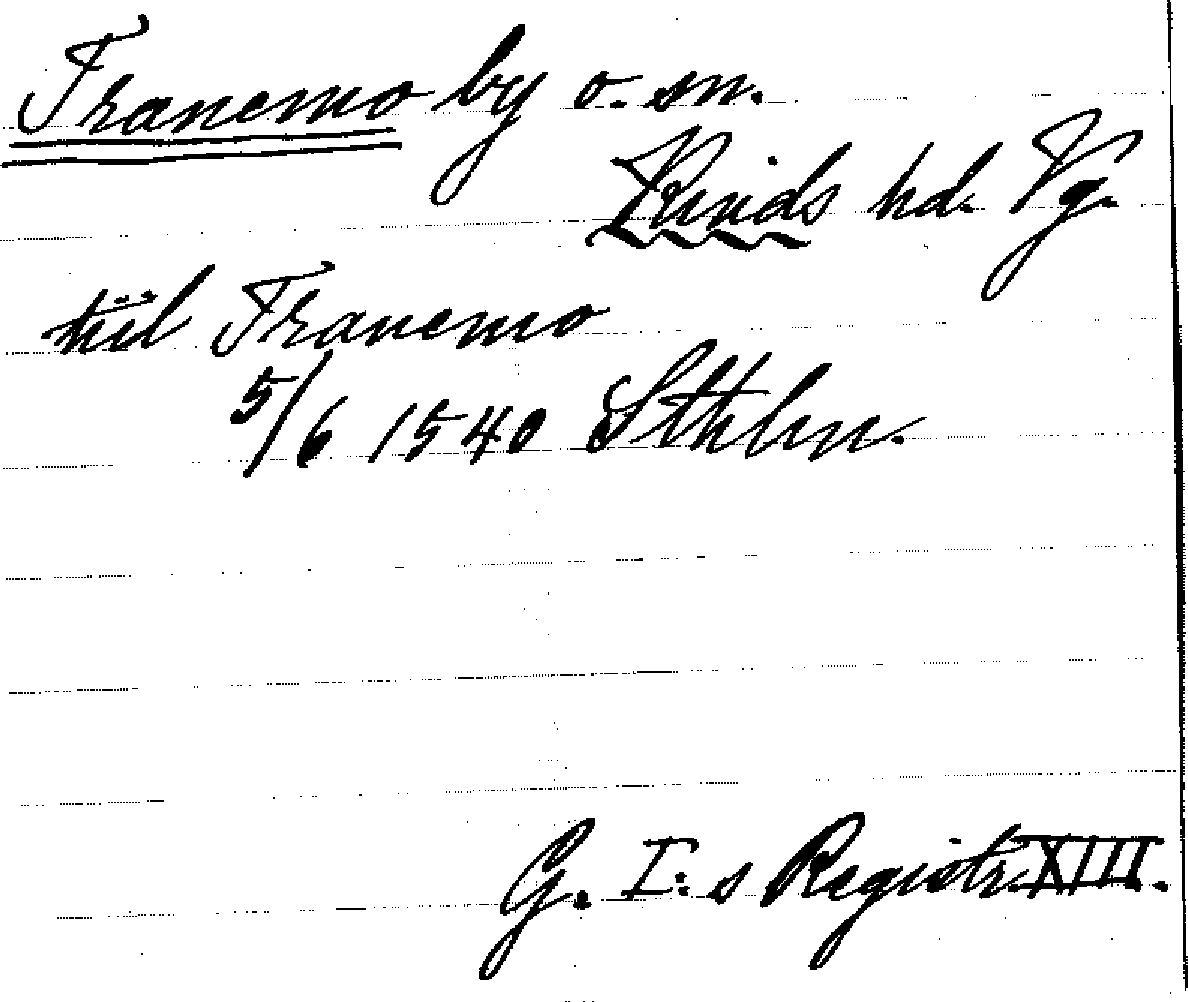 Tranemo by o. sn.
Kinds hd. Vg.
till Tranemo
5/6 1540 Sthlm.
G. I:s Registr. XIII.